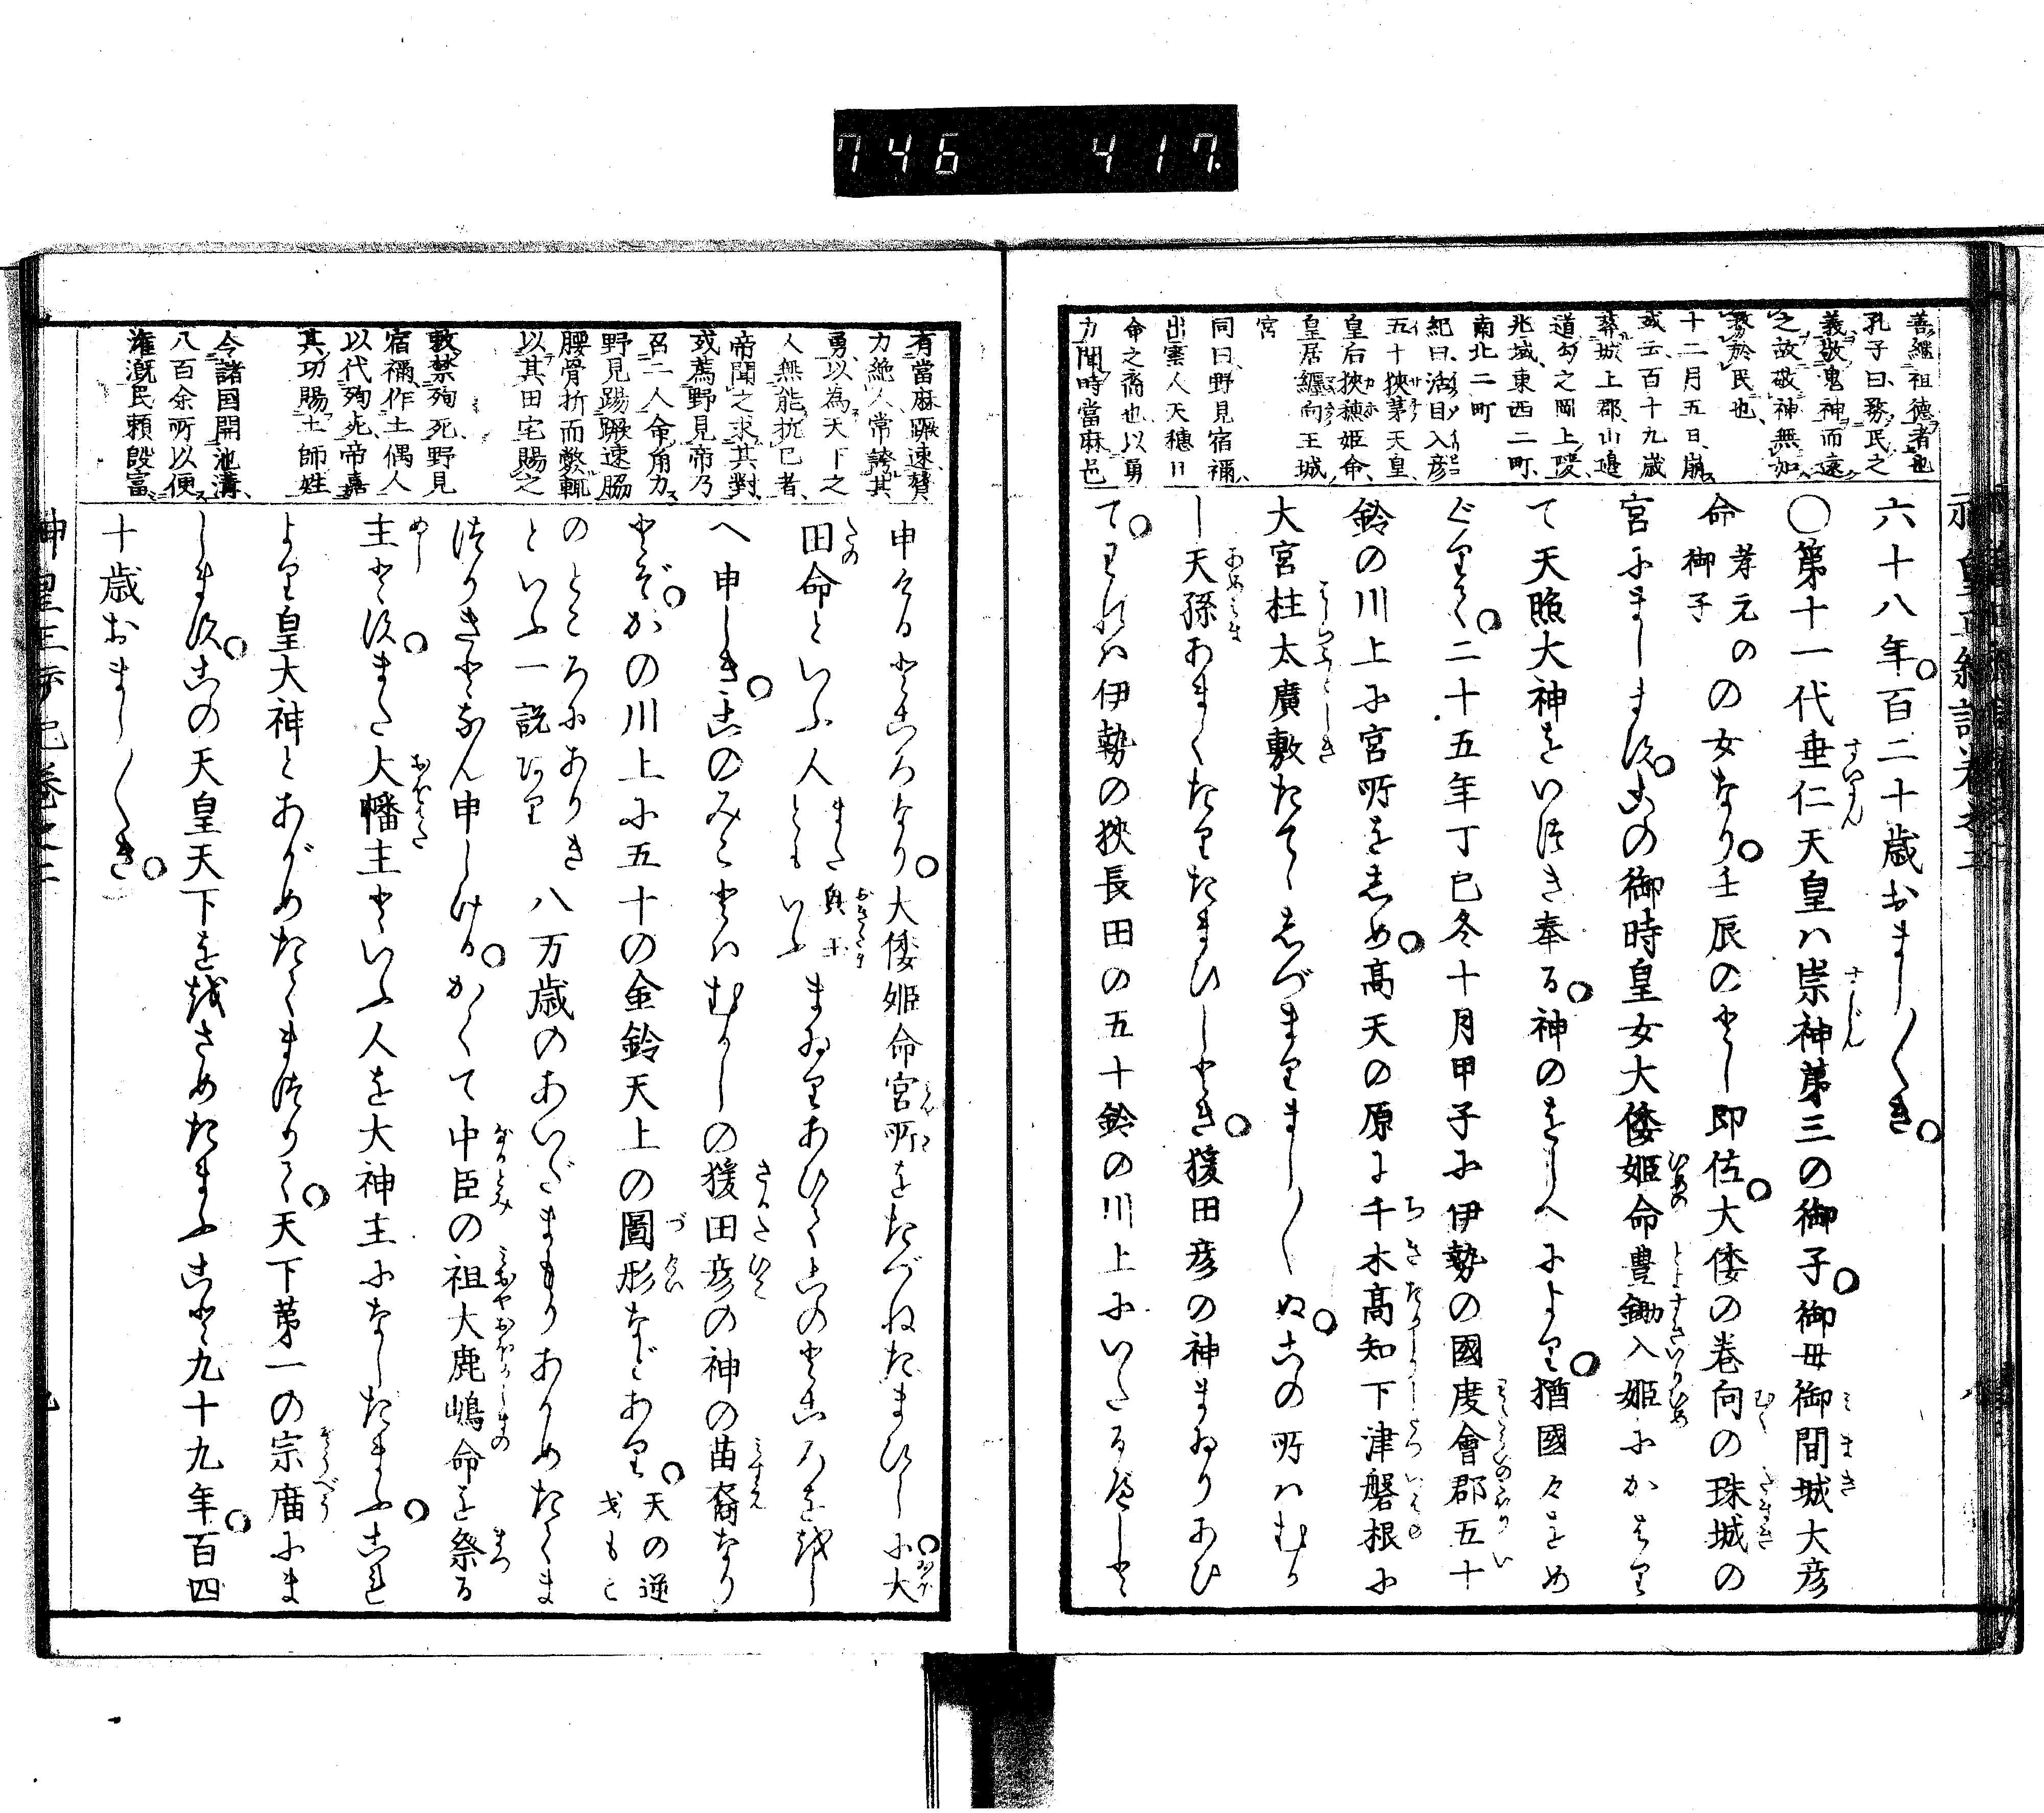 746 417.
善繼祖德者也
孔子曰務民之
義敬鬼神而遠
之故敬神無如
務於民也
十二月五日崩
或云百十九歳
葬城上郡山邉
道勾之岡上陵
兆域東西二町
南北二町
紀曰活目入彦
五十狹茅天皇
皇后狹穂姫命
皇居纏向玉城
宮
同曰野見宿禰
出雲人天穂日
命之裔也以勇
力聞時當麻邑
六十八年百二十歳おまし〱き
〇第十一代垂仁天皇ハ崇神第三の御子御母御間城大彦
命孝元の御子の女なり壬辰のとし即位大倭の巻向の珠城の
宮にまします此の御時皇女大倭姫命豊鋤入姫にかはり
て天照大神をいつき奉る神のをしへによりて猶國々をめ
ぐりて二十五年丁巳冬十月甲子に伊勢の國度會郡五十
鈴の川上に宮所をしめ高天の原に千木高知下津磐根に
大宮柱太廣敷たてゝしづまりまし〱ぬこの所ハむか
し天孫あまくだりたまひしとき猿田彦の神まゐりあひ
てわれハ伊勢の狹長田の五十鈴の川上にいたるべしと
有當麻蹶速膂
力絶人常誇其
勇以為天下之
人無能抗己者
帝聞之求其對
或薦野見帝乃
召二人命角力
野見踢蹶速脇
腰骨折而斃輙
以其田宅賜之
敕禁殉死野見
宿禰作土偶人
以代殉死帝嘉
其功賜土師姓
令諸国開池溝
八百余所以便
潅漑民頼殷富
申けるところなり大倭姫命宮所をたづねたまひしに大
田命といふ人またハ興玉ともいふまゐりあひてこのところををし
へ申しきこのみことハむかしの猿田彦の神の苗裔なり
とぞかの川上に五十の金鈴天上の圖形などあり天の逆戈もこ
のところにありきといふ一説あり八万歳のあいだまもりあがめたてま
つりきとなん申しけるかくて中臣の祖大鹿嶋命を祭る
主とすまた大幡主といふ人を大神主になしたまふこれ
より皇大神とあがめたてまつりて天下第一の宗廟にま
しますこの天皇天下ををさめたまふこと九十九年百四
十歳おまし〱き